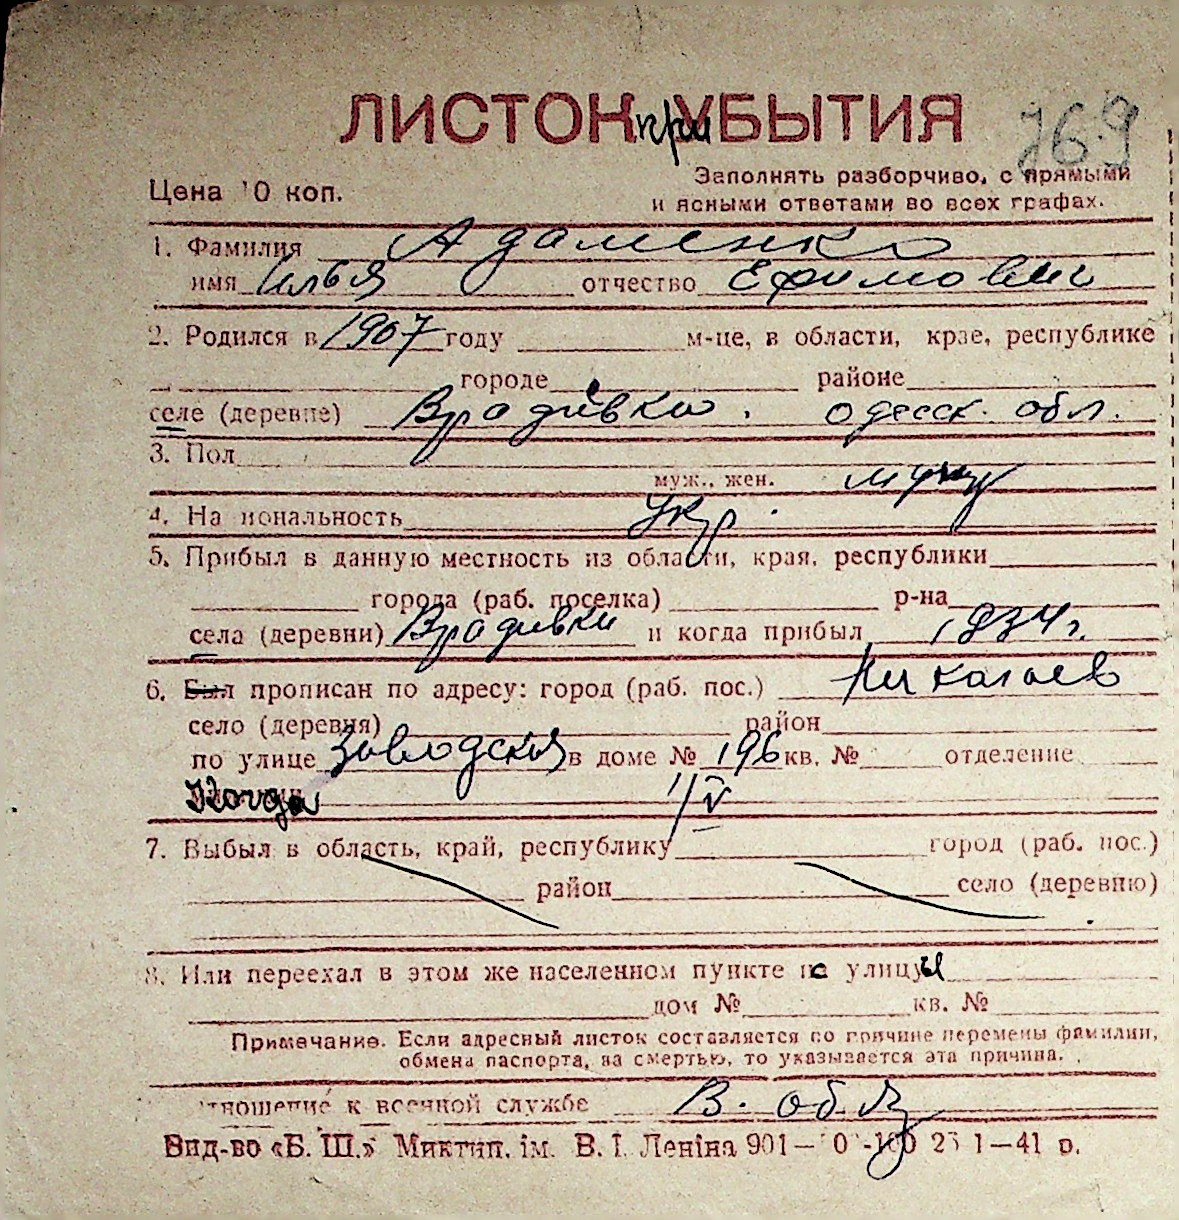 ЛИСТОК при УБЫТИЯ
769
Цена 10 коп.
Заполнять разборчиво, с прямыми
и ясными ответами во всех графах.
1. Фамилия Адаменко
имя Илья отчество Ефимович
2. Родился в 1907 году м-це, в области, крае, республике
городе районе
селе (деревне) Врадиевка. Одесск. обл.
3. Пол
муж., жен. муж
4. Национальность Укр.
5. Прибыл в данную местность из области, края, республики
города (раб. поселка) р-на
села (деревни) Врадивки и когда прибыл 1934 г.
6. Был прописан по адресу: город (раб. пос.) Николаев
село (деревня) район
по улице Заводская в доме № 196 кв. № отделение
Когда 1/V
7. Выбыл в область, край, республику город (раб. пос.)
район село (деревню)
8. Или переехал в этом же населенном пункте с улицы
дом № кв. №
Примечание. Если адресный листок составляется по причине перемены фамилии,
обмена паспорта, за смертью, то указывается эта причина.
Отношение к военной службе В. обяз
Вид-во «Б. Ш.» Миктип. ім. В. І. Леніна 901— 1—41 р.